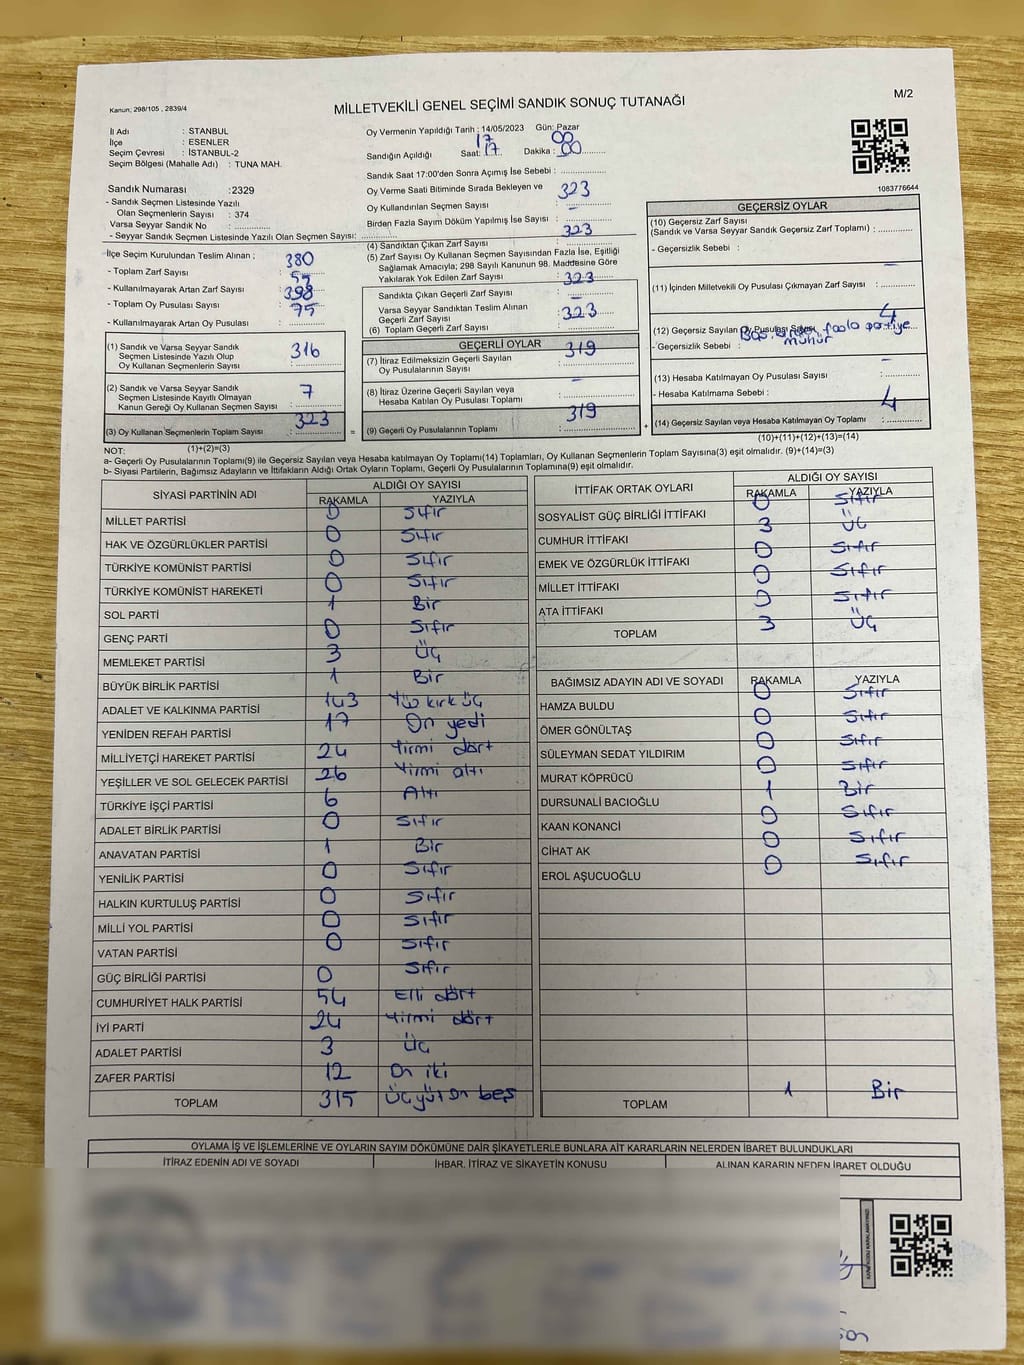 M/2
Kanun: 298/105 , 2839/4
MİLLETVEKİLİ GENEL SEÇİMİ SANDIK SONUÇ TUTANAĞI
İl Adı : STANBUL
İlçe : ESENLER
Seçim Çevresi : İSTANBUL-2
Seçim Bölgesi (Mahalle Adı) : TUNA MAH.
Oy Vermenin Yapıldığı Tarih : 14/05/2023 Gün: Pazar
17 00
Sandığın Açıldığı Saat: 17 Dakika : 00
Sandık Saat 17:00'den Sonra Açımış İse Sebebi :
Sandık Numarası :2329
- Sandık Seçmen Listesinde Yazılı
Olan Seçmenlerin Sayısı : 374
Varsa Seyyar Sandık No
- Seyyar Sandık Seçmen Listesinde Yazılı Olan Seçmen Sayısı:
Oy Verme Saati Bitiminde Sırada Bekleyen ve 323
Oy Kullandırılan Seçmen Sayısı : -
Birden Fazla Sayım Döküm Yapılmış İse Sayısı :
323
1083776644
İlçe Seçim Kurulundan Teslim Alınan ; 380
- Toplam Zarf Sayısı 57
- Kullanılmayarak Artan Zarf Sayısı 398
- Toplam Oy Pusulası Sayısı 75
- Kullanılmayarak Artan Oy Pusulası
(4) Sandıktan Çıkan Zarf Sayısı
(5) Zarf Sayısı Oy Kullanan Seçmen Sayısından Fazla İse, Eşitliği
Sağlamak Amacıyla; 298 Sayılı Kanunun 98. Maddesine Göre
Yakılarak Yok Edilen Zarf Sayısı : 323
Sandıkta Çıkan Geçerli Zarf Sayısı -
Varsa Seyyar Sandıktan Teslim Alınan
Geçerli Zarf Sayısı : 323
(6) Toplam Geçerli Zarf Sayısı
(1) Sandık ve Varsa Seyyar Sandık
Seçmen Listesinde Yazılı Olup
Oy Kullanan Seçmenlerin Sayısı : 316
(2) Sandık ve Varsa Seyyar Sandık
Seçmen Listesinde Kayıtlı Olmayan
Kanun Gereği Oy Kullanan Seçmen Sayısı : 7
(3) Oy Kullanan Seçmenlerin Toplam Sayısı : 323
GEÇERLİ OYLAR
(7) İtiraz Edilmeksizin Geçerli Sayılan 319
Oy Pusulalarının Sayısı
(8) İtiraz Üzerine Geçerli Sayılan veya -
Hesaba Katılan Oy Pusulası Toplamı
(9) Geçerli Oy Pusulalarının Toplamı : 319
GEÇERSİZ OYLAR
(10) Geçersiz Zarf Sayısı
(Sandık ve Varsa Seyyar Sandık Geçersiz Zarf Toplamı) :
- Geçersizlik Sebebi :
(11) İçinden Milletvekili Oy Pusulası Çıkmayan Zarf Sayısı : -
4
(12) Geçersiz Sayılan Oy Pusulası Sayısı
- Geçersizlik Sebebi : fazla partiye mühür
(13) Hesaba Katılmayan Oy Pusulası Sayısı : -
- Hesaba Katılmama Sebebi :
(14) Geçersiz Sayılan veya Hesaba Katılmayan Oy Toplamı : 4
NOT: (1)+(2)=(3)
(10)+(11)+(12)+(13)=(14)
a- Geçerli Oy Pusulalarının Toplamı(9) ile Geçersiz Sayılan veya Hesaba katılmayan Oy Toplamı(14) Toplamları, Oy Kullanan Seçmenlerin Toplam Sayısına(3) eşit olmalıdır. (9)+(14)=(3)
b- Siyasi Partilerin, Bağımsız Adayların ve İttifakların Aldığı Ortak Oyların Toplamı, Geçerli Oy Pusulalarının Toplamına(9) eşit olmalıdır.
SİYASİ PARTİNİN ADI ALDIĞI OY SAYISI
RAKAMLA YAZIYLA
MİLLET PARTİSİ 0 Sıfır
HAK VE ÖZGÜRLÜKLER PARTİSİ 0 Sıfır
TÜRKİYE KOMÜNİST PARTİSİ 0 Sıfır
TÜRKİYE KOMÜNİST HAREKETİ 0 Sıfır
SOL PARTİ 1 Bir
GENÇ PARTİ 0 Sıfır
MEMLEKET PARTİSİ 3 Üç
BÜYÜK BİRLİK PARTİSİ 1 Bir
ADALET VE KALKINMA PARTİSİ 143 Yüz kırk üç
YENİDEN REFAH PARTİSİ 17 On yedi
MİLLİYETÇİ HAREKET PARTİSİ 24 Yirmi dört
YEŞİLLER VE SOL GELECEK PARTİSİ 26 Yirmi altı
TÜRKİYE İŞÇİ PARTİSİ 6 Altı
ADALET BİRLİK PARTİSİ 0 Sıfır
ANAVATAN PARTİSİ 1 Bir
YENİLİK PARTİSİ 0 Sıfır
HALKIN KURTULUŞ PARTİSİ 0 Sıfır
MİLLİ YOL PARTİSİ 0 Sıfır
VATAN PARTİSİ 0 Sıfır
GÜÇ BİRLİĞİ PARTİSİ 0 Sıfır
CUMHURİYET HALK PARTİSİ 54 Elli dört
İYİ PARTİ 24 Yirmi dört
ADALET PARTİSİ 3 Üç
ZAFER PARTİSİ 12 On iki
TOPLAM 315 Üçyüz on beş
İTTİFAK ORTAK OYLARI ALDIĞI OY SAYISI
RAKAMLA YAZIYLA
SOSYALİST GÜÇ BİRLİĞİ İTTİFAKI 0 Sıfır
CUMHUR İTTİFAKI 3 Üç
EMEK VE ÖZGÜRLÜK İTTİFAKI 0 Sıfır
MİLLET İTTİFAKI 0 Sıfır
ATA İTTİFAKI 0 Sıfır
TOPLAM 3 Üç
BAĞIMSIZ ADAYIN ADI VE SOYADI RAKAMLA YAZIYLA
HAMZA BULDU 0 Sıfır
ÖMER GÖNÜLTAŞ 0 Sıfır
SÜLEYMAN SEDAT YILDIRIM 0 Sıfır
MURAT KÖPRÜCÜ 0 Sıfır
DURSUNALİ BACIOĞLU 1 Bir
KAAN KONANCİ 0 Sıfır
CİHAT AK 0 Sıfır
EROL AŞUCUOĞLU 0 Sıfır
TOPLAM 1 Bir
OYLAMA İŞ VE İŞLEMLERİNE VE OYLARIN SAYIM DÖKÜMÜNE DAİR ŞİKAYETLERLE BUNLARA AİT KARARLARIN NELERDEN İBARET BULUNDUKLARI
İTİRAZ EDENİN ADI VE SOYADI İHBAR, İTİRAZ VE ŞİKAYETİN KONUSU ALINAN KARARIN NEDEN İBARET OLDUĞU